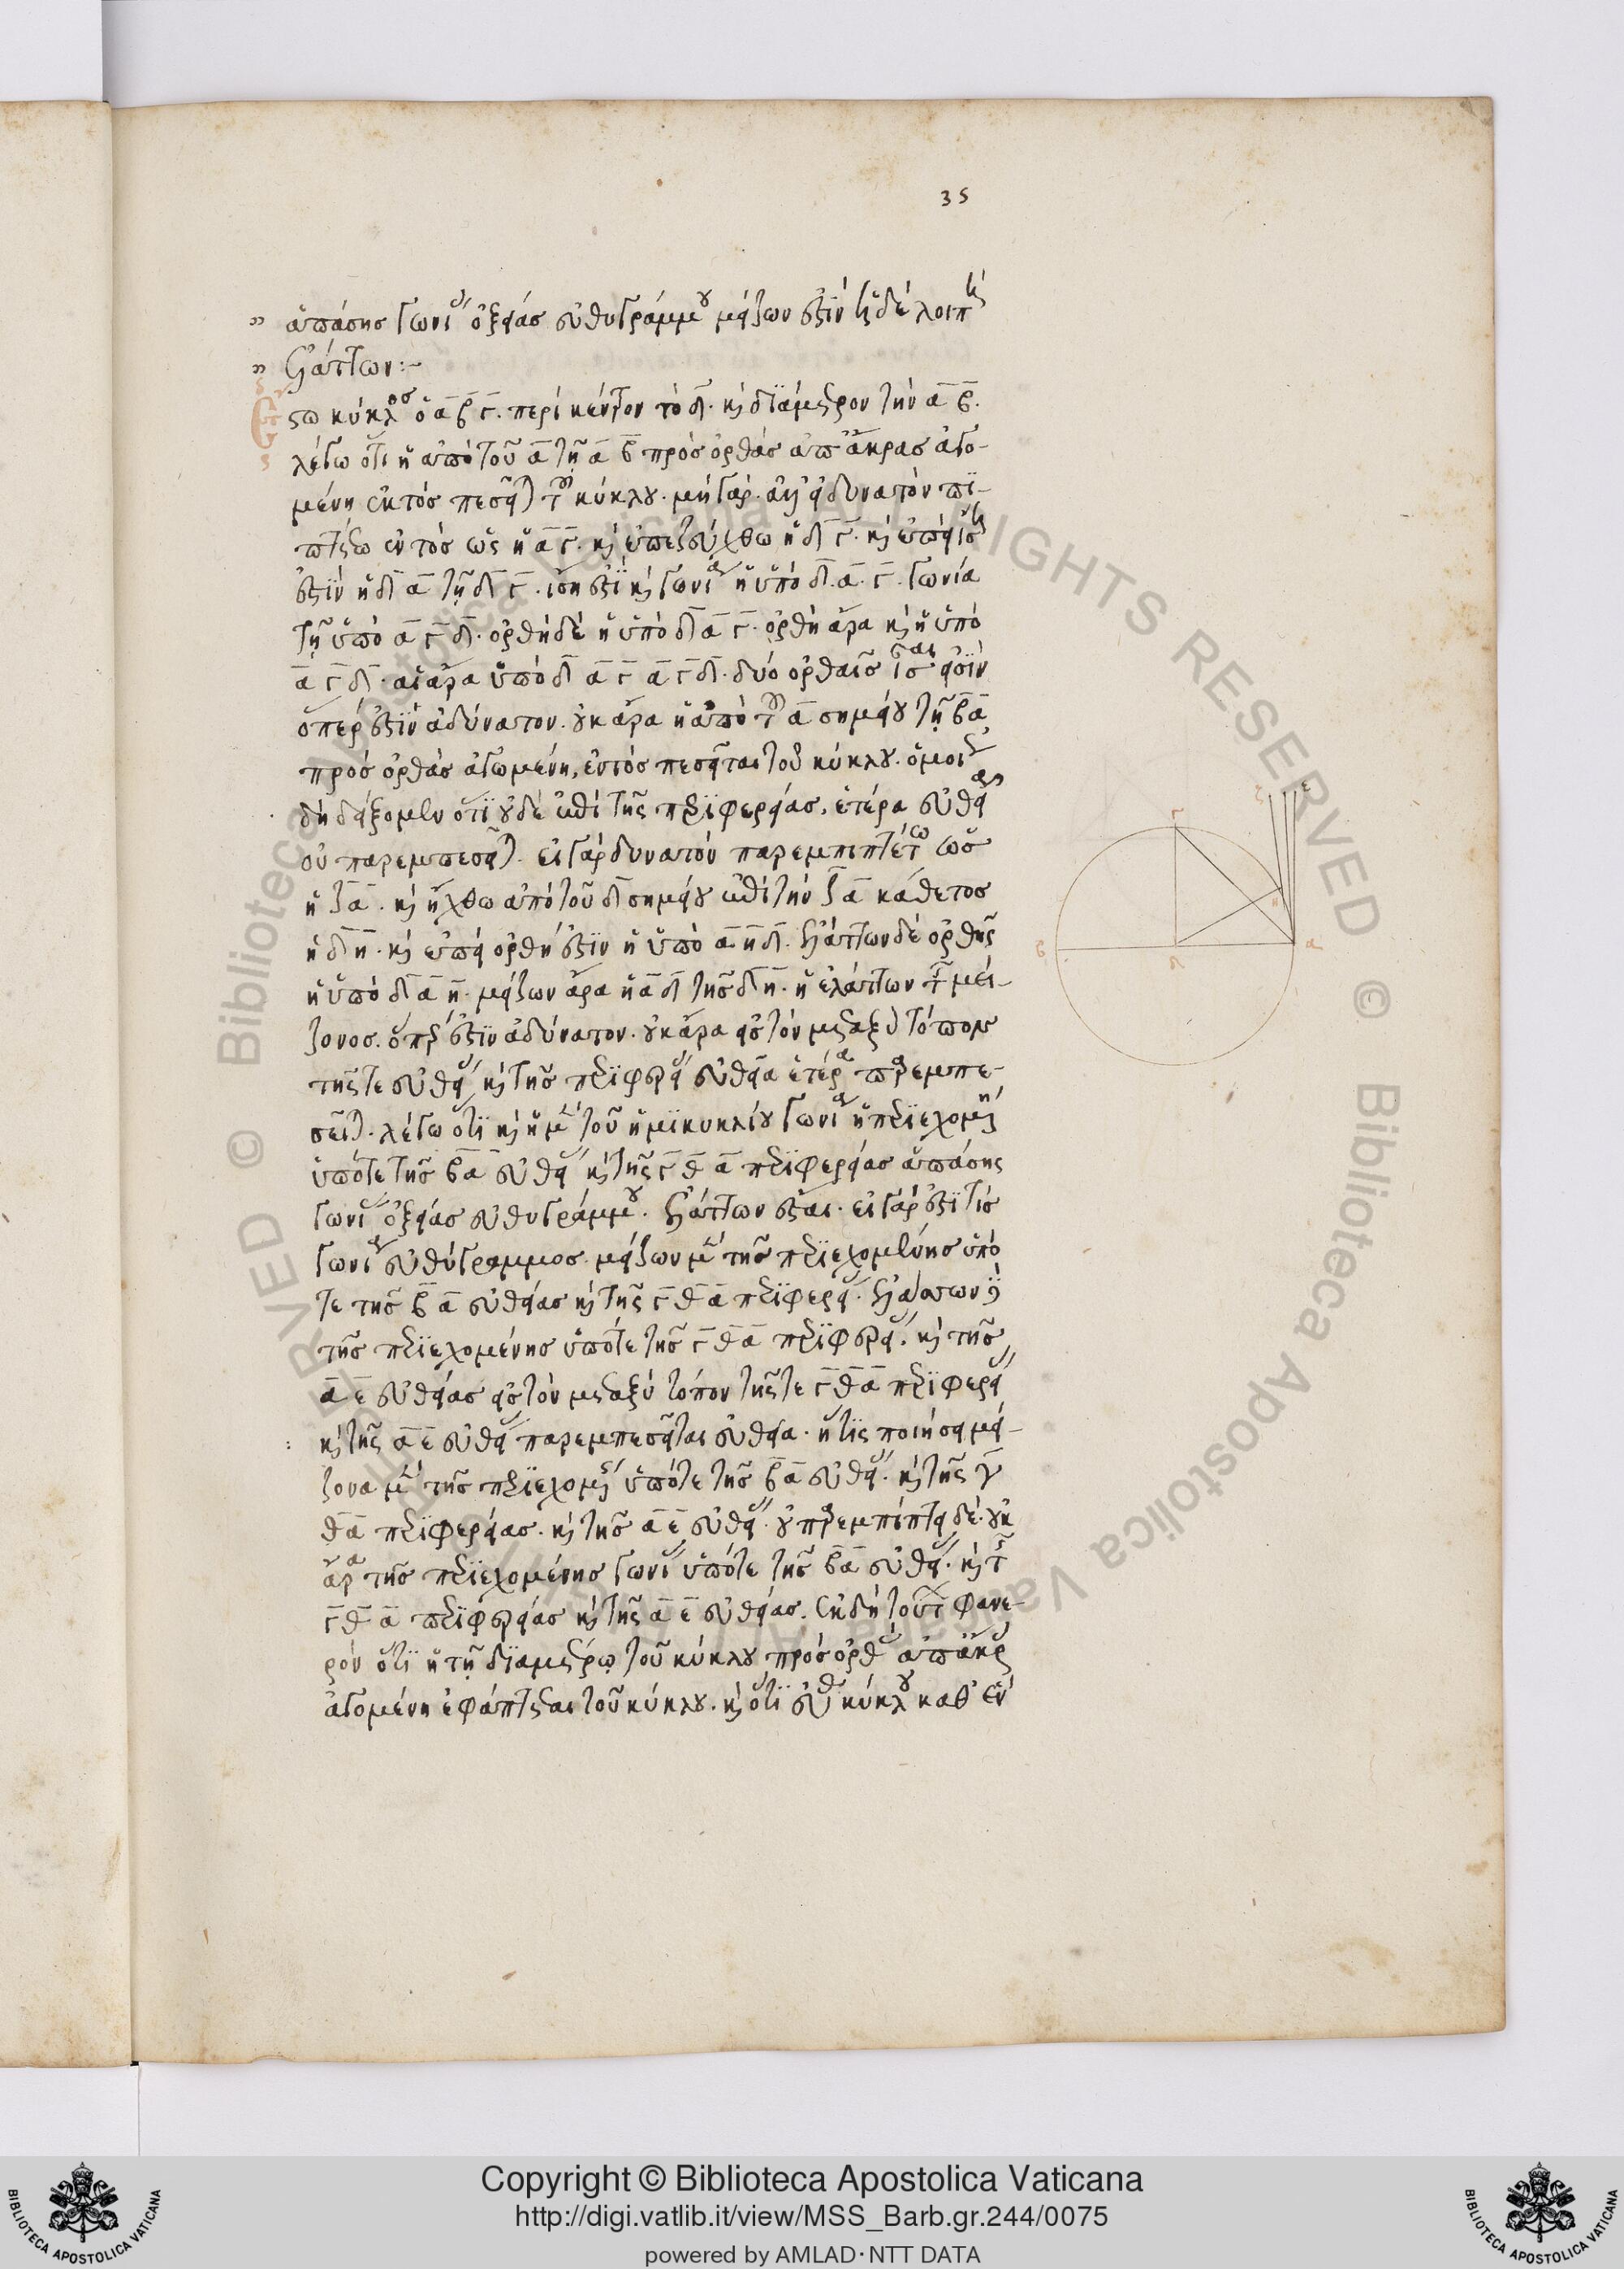 35
ἁπάσης γωνί ὀξείας εὐθυγράμμου μείζων ἐστὶν ἡ δὲ λοιπὴ
ἐλάττων:~
στω κύκλος ὁ α β γ. περὶ κέντρον τὸ δ. καὶ διάμετρον τὴν α β.
λέγω ὅτι ἡ ἀπὸ τοῦ α τῇ α β πρὸς ὀρθὰς ἀπ ἄκρας ἀγο-
μένη ἐκτὸς πεσεῖται τοῦ κύκλου. μὴ γάρ. ἀλλ εἰ δυνατὸν πι-
πτέτω ἐντὸς ὡς ἡ α γ. καὶ ἐπεζεύχθω ἡ δ γ. καὶ ἐπεὶ ἴση
ἐστὶν ἡ δ α τῇ δ γ. ἴση ἐστὶ καὶ γωνία ἡ ὑπὸ δ. α. γ. γωνία
τῇ ὑπὸ α γ δ. ὀρθὴ δὲ ἡ ὑπὸ δ α γ. ὀρθὴ ἄρα καὶ ἡ ὑπὸ
α γ δ. αἱ ἄρα ὑπὸ δ α γ α γ δ. δυὸ ὀρθαῖς ἴσαι εἰσὶν
ὅπερ ἐστὶν ἀδύνατον. οὐκ ἄρα ἡ ἀπὸ τοῦ α σημείου τῇ β α
πρὸς ὀρθὰς ἀγωμένη, ἐντὸς πεσεῖται τοῦ κύκλου. ὁμοίως
δὴ δείξομεν ὅτι οὐδὲ ἐπὶ τῆς περιφερείας. ἑτέρα εὐθεῖα
οὐ παρεμπεσεῖται. εἰ γὰρ δυνατόν παρεμπιπτέτω ὡς
ἡ ζ α. καὶ ἤχθω ἀπὸ τοῦ δ σημείου ἐπὶ τὴν ζ α κάθετος
ἡ δ η. καὶ ἐπεὶ ὀρθή ἐστιν ἡ ὑπὸ α η δ. ἐλάττων δὲ ὀρθῆς
ἡ ὑπὸ δ α η. μείζων ἄρα ἡ α δ τῆς δ η. ἡ ἐλάττων τῆς μεί-
ζονος. ὅπερ ἐστὶν ἀδύνατον. οὐκ ἄρα εἰς τὸν μεταξὺ τόπον
τῆς τε εὐθείας καὶ τῆς περιφερείας εὐθεῖα ἑτέρα παρεμπε-
σεῖται. λέγω ὅτι καὶ ἡ μὲν τοῦ ἡμικυκλίου γωνία ἡ περιεχομένη
ὑπό τε τῆς β α εὐθείας καὶ τῆς γ θ α περιφερείας ἁπάσης
γωνίας ὀξείας εὐθυγράμμου. ἐλάττων ἐστὶ. εἰ γάρ ἐστί τις
γωνία εὐθύγραμμος μείζων μὲν τῆς περιεχομένης ὑπό
τε τῆς β α εὐθείας καὶ τῆς γ θ α περιφερείας. ἐλάττων δὲ
τῆς περιεχομένης ὑπό τε τῆς γ θ α περιφερείας. καὶ τῆς
α ε εὐθείας εἰς τὸν μεταξὺ τόπον τῆς τε γ θ α περιφερείας
καὶ τῆς α ε εὐθείας παρεμπεσεῖται εὐθεῖα. ἥτις ποιήσει μεί-
ζονα μὲν τῆς περιεχομένης ὑπό τε τῆς β α εὐθείας. καὶ τῆς γ
θ α περιφερείας. καὶ τῆς α ε εὐθείας. οὐ παρεμπίπτει δέ. οὐκ
ἄρα τῆς περιεχομένης γωνίας ὑπό τε τῆς β α εὐθείας. καὶ τῆς
γ θ α περιφερείας καὶ τῆς α ε εὐθείας. ἐκ δὴ τούτου φανε-
ρὸν ὅτι ἡ τῇ διαμέτρῳ τοῦ κύκλου πρὸς ὀρθὰς ἀπ ἄκρας
ἀγομένη ἐφάπτεται τοῦ κύκλου. καὶ ὅτι εὐθεῖα κύκλου καθ ἓν
γ
ζ
ε
η
β
δ
α
Copyright © Biblioteca Apostolica Vaticana
http://digi.vatlib.it/view/MSS_Barb.gr.244/0075
powered by AMLAD·NTT DATA
BIBLIOTECA APOSTOLICA VATICANA
BIBLIOTECA APOSTOLICA VATICANA
© Biblioteca Apostolica Vaticana ALL RIGHTS RESERVED © Biblioteca Apostolica Vaticana ALL RIGHTS RESERVED